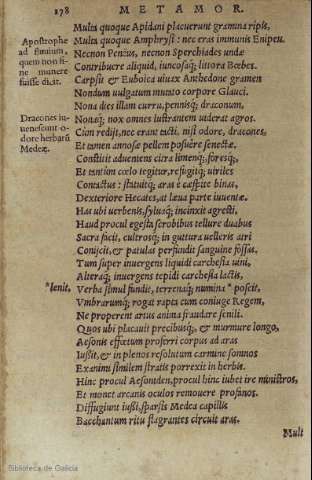 178 METAMOR.
Multa quoque Apidani placuerunt gramina ripis,
Apostrophe
ad fluuium,
quem non si-
ne munere
fuisse dicit.
Multa quoque Amphrysi: nec eras immunis Enipeu.
Necnon Peneus, necnon Sperchiades undæ
Contribuere aliquid, iuncosaq; littora Bœbes.
Carpsit & Euboica uiuax Anthedone gramen
Nondum uulgatum mutato corpore Glauci.
Nona dies illam curru, pennisq; draconum,
Dracones iu-
uenescunt o-
dore herbarũ
Medeæ.
Nonaq; nox omnes lustrantem uiderat agros.
Cùm redijt, nec erant tacti, nisi odore, dracones,
Et tamen annosæ pellem posuêre senectæ.
Constitit adueniens citra limenq;, foresq;,
Et tantùm cœlo tegitur, refugitq; uiriles
Contactus: statuitq; aras è cæspite binas,
Dexteriore Hecates, at læua parte iuuentæ.
Has ubi uerbenis, syluaq; incinxit agresti,
Haud procul egesta scrobibus tellure duabus
Sacra facit, cultrosq; in guttura uelleris atri
Conijcit, & patulas perfundit sanguine fossas.
Tum super inuergens liquidi carchesia uini,
Alteraq; inuergens tepidi carchesia lactis,
*lenit. Verba simul fundit, terrenaq; numina *poscit,
Vmbrarumq; rogat rapta cum coniuge Regem,
Ne properent artus anima fraudare senili.
Quos ubi placauit precibusq;, & murmure longo,
Aesonis effœtum proferri corpus ad aras
Iußit, & in plenos resolutum carmine somnos
Exanimi similem stratis porrexit in herbis.
Hinc procul Aesoniden, procul hinc iubet ire ministros,
Et monet arcanis oculos remouere profanos.
Diffugiunt iußi, sparsis Medea capillis
Bacchantum ritu flagrantes circuit aras.
Mult
Biblioteca de Galicia